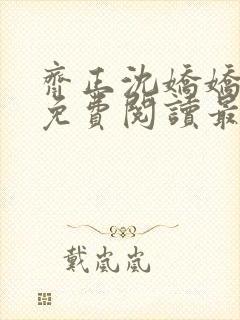 齊正沈嬌嬌
免費閱讀最
戴嵐嵐